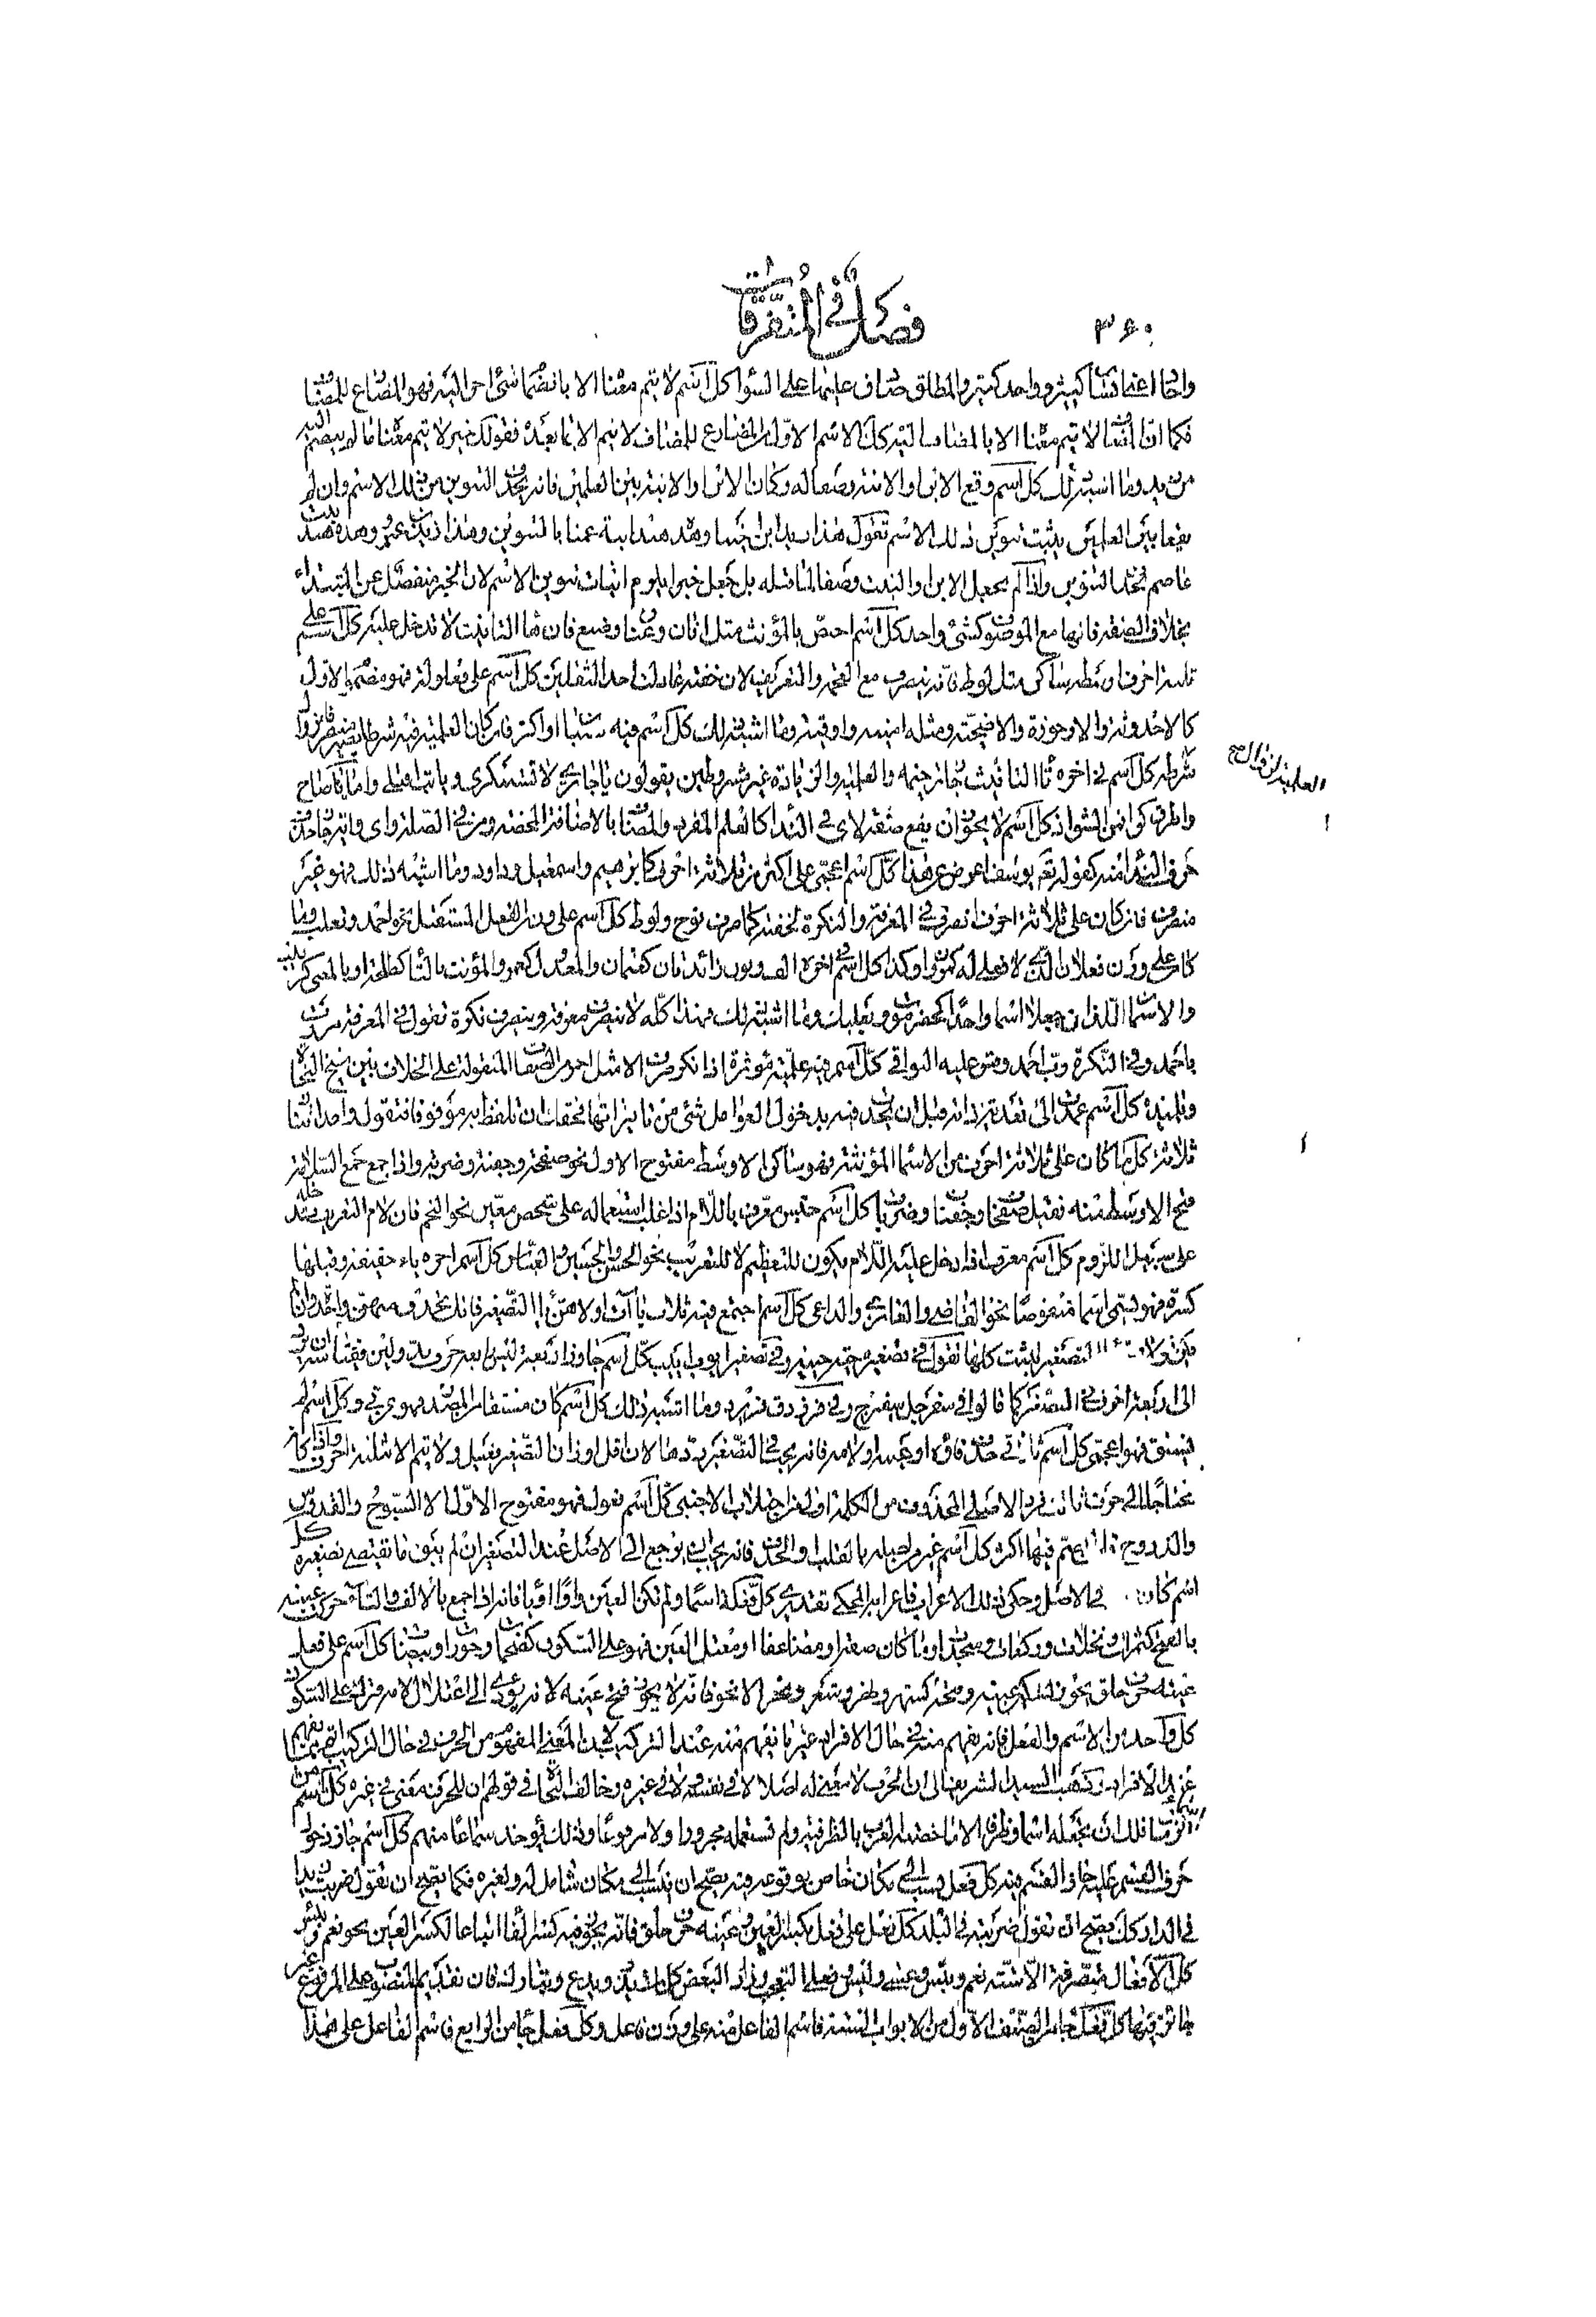 فصل في المتفرقات
٣٤٠
على السواء كل اسم لا يتم معناه الا بانضمام شئ اخر اليه فهو المضارع للمضاف
فكما ان المضاف لا يتم معناه الا بالمضاف اليه كك الاسم الاول المضارع للمضاف لا يتم الا بما بعده فقولك خير لا يتم معناه ما لم ينضم اليه
من زيد وما اشبه ذلك كل اسم وقع الابن او الابنة وصفا له وكان الابن او الابنة بين العلمين فانه يحذف التنوين من ذلك الاسم وان لم
يقعا بين العلمين يثبت تنوين ذلك الاسم تقول هذا زيد ابن اخينا وهذه هند ابنة عمنا بالتنوين وهذا زيد بن عمرو وهذه هند بنت
عاصم بحذف التنوين واذا لم يجعل الابن والبنت وصفا لما قبله بل جعل خبرا يلزم اثبات تنوين الاسم لان الخبر منفصل عن المبتداء
بخلاف الصفة فانها مع الموصوف كشئ واحد كل اسم اختص بالمؤنث مثل اتان وعناق وضبع فان هاء التانيث لا تدخل عليه كل اسم على
ثلاثة احرف اوسطه ساكن مثل لوط فانه ينصرف مع العجمة والتعريف لان خفته عادلت احد الثقلين كل اسم على افعولة فهو مضموم الاول
كالاحدوثة والارجوزة والاضحية ومثله امنية واوقية وما اشبه ذلك كل اسم فيه سببان او اكثر فان كان العلمية فيه شرطا يصير منصرفا بزوال
شرطه كل اسم في اخره تاء التانيث جائز ترخيمه والعلمية والزيادة غير مشروطين يقولون يا جاري لا تستنكري
واطرق كرا فمن الشواذ كل اسم لا يجوز ان يقع صفة لاي في النداء كالعلم المفرد والمضاف بالاضافة المحضة ومن في الصلة واي فانه جاز حذف
حرف النداء منه كقوله تع يوسف اعرض عن هذا كل اسم اعجمي على اكثر من ثلاثة احرف كابرهيم واسمعيل وداود وما اشبه ذلك فهو غير
منصرف فان كان على ثلاثة احرف انصرف في المعرفة والنكرة لخفته كما صرف نوح ولوط كل اسم على وزن الفعل المستقبل نحو احمد وتغلب وما
كان على وزن فعلان الذي لا فعلى له كمروان وكذا كل اسم في اخره الف ونون زائدتان كعثمان والمعدول كعمر والمؤنث بالتاء كطلحة او بالمعنى كزينب
والاسمان اللذان جعلا اسما واحدا كحضرموت وبعلبك وما اشبه ذلك فهذا كله لا ينصرف معرفة وينصرف نكرة تقول في المعرفة مررت
باحمد وفي النكرة رب احمد وقس عليه البواقي كل اسم فيه علمية مؤثرة اذا نكر صرف الا مثل احمر من الصفات المنقولة على الخلاف بين شيخ النحاة
وتلميذه كل اسم عمدت الى تعديته قبل ان يحدث فيه بدخول العوامل شئ من تاثيراتها فحقك ان تلفظ به موقوفا فتقول واحد اثنان
ثلاثة كل ما كان على ثلاثة احرف من الاسماء المؤنثة وهو ساكن الاوسط مفتوح الاول نحو صفحة وجفنة وضربة واذا جمع جمع السلامة
فتح الاوسط منه فقيل صفحات وجفنات وضربات كل اسم جنس معرف باللام اذا غلب استعماله على شخص معين نحو النجم فان لام التعريف تدخله
على سبيل اللزوم كل اسم معرف اذا دخل عليه اللام يكون للتعظيم لا للتعريف نحو الحسن والحسين والعباس كل اسم اخره ياء خفيفة وقبلها
كسرة فهو يسمى اسما منقوصا نحو القاضي والغازي والداعي كل اسم اجتمع فيه ثلاث ياآت اولاهن ياء التصغير فانك تحذف منهن واحدة وان
التصغير ثبتت كلها تقول في تصغير حية حيية وفي تصغير ايوب اييب كل اسم جاوز اربعة ليس رابعه حرف مد ولين فقياسه ان يرد
الى اربعة احرف في التصغير كما قالوا في سفرجل سفيرج وفي فرزدق فريزد وما اشبه ذلك كل اسم كان مشتقا من المصدر فهو عربي وكل اسم لم
يشتق فهو اعجمي كل اسم ثنائي حذف فاؤه او عينه او لامه فانه يجب في التصغير ردها لان اقل اوزان التصغير فعيل ولا يتم الا بثلثة احرف واذا كان
محتاجا الى حرف ثالث فرد الاصلي المحذوف من الكلمة اولى من اجتلاب الاجنبي كل اسم فعول فهو مفتوح الاول الا السبوح والقدوس
والذروح فان الضم فيها اكثر كل اسم غير من اصله بالقلب والحذف فانه يجب ان يرجع الى الاصل عند التصغير ان لم يبق ما يقتضي تغييره كل
اسم كان في الاصل وحكي ذلك الاعراب فاعرابه المحكي تقديري كل فعلة اسما ولم تكن العين واوا او ياء فانه اذا جمع بالالف والتاء حركت عينه
بالفتح كتمرات ونخلات وركعات وسجدات وما كان صفة او مضاعفا او معتل العين فهو على السكون كضخمات وجوزات وبيضات كل اسم على فعل
عينه حرف حلق يجوز تسكين عينه وفتحه كشهر وظهر وشعر وبحر الا نحو فانه لا يجوز فتح عينه لانه يؤدي الى اعتلال لامه فترك على السكون
كل واحد من الاسم والفعل فانه يفهم منه في حال الافراد عين ما يفهم منه عند التركيب لكن المعنى المفهوم من الحرف في حال التركيب اتم مما يفهم
عند الافراد وذهب السيد الشريف الى ان الحرف لا معنى له اصلا لا في نفسه ولا في غيره وخالف النحاة في قولهم ان للحرف معنى في غيره كل اسم من
اسماء الزمان فلك ان تجعله اسما وظرفا الا ما خصته العرب بالظرفية ولم تستعمله مجرورا ولا مرفوعا وذلك يؤخذ سماعا منهم كل اسم جاز دخول
حرف القسم عليه جاز القسم فيه كل فعل ينسب الى مكان خاص بوقوعه فيه يصح ان ينسب الى مكان شامل له ولغيره فكما يصح ان تقول ضربت زيدا
في الدار كك يصح ان تقول ضربته في البلد كل فعل على فعل بكسر العين وعينه حرف حلق فانه يجوز فيه كسر الفاء اتباعا لكسر العين نحو نعم وبئس
كل الافعال متصرفة الا ستة نعم وبئس وعسى وليس وفعل التعجب وزاد البعض كلمات يذر ويدع وتبارك فان تقديم المنصوب على المرفوع غير
جائز فيها كل فعل جاء من الصنف الاول من الابواب الستة فاسم الفاعل منه على وزن فاعل وكل فعل جاء من الرابع فاسم الفاعل على هذا